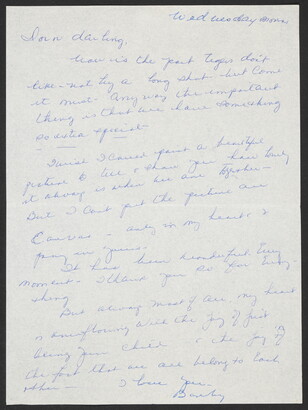 Wednesday morn
darling,
Now is the part I don't
like - not by a long shot - but come
it must. Anyway the important
thing is that we have something
so special -
I wish I could paint a beautiful
picture to tell & show you how lovely
it always is when we are together -
But I can't put the picture on
Canvas - only in my heart &
pray in yours.
It has been wonderful. Every
moment - Thank you so for every-
thing
But always most of all, my heart
is overflowing with the joy of just
being your child & the joy of
the fact that we all belong to each
other - I love you.